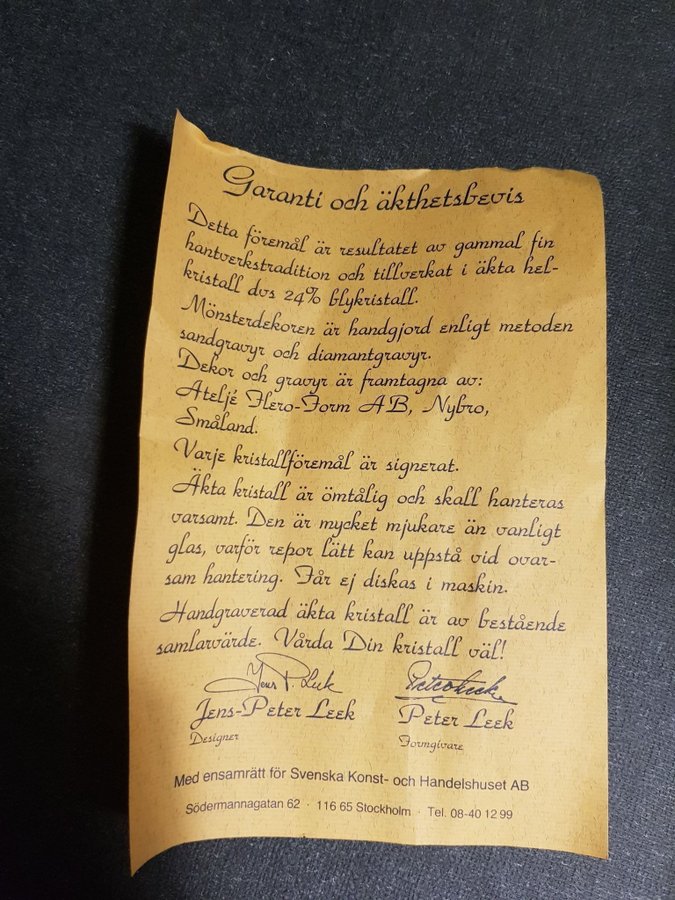 Garanti och äkthetsbevis
Detta föremål är resultatet av gammal fin
hantverkstradition och tillverkat i äkta hel-
kristall dvs 24% blykristall.
Mönsterdekoren är handgjord enligt metoden
sandgravyr och diamantgravyr.
Dekor och gravyr är framtagna av:
Ateljé Flero-Form AB, Nybro,
Småland.
Varje kristallföremål är signerat.
Äkta kristall är ömtålig och skall hanteras
varsamt. Den är mycket mjukare än vanligt
glas, varför repor lätt kan uppstå vid ovar-
sam hantering. Får ej diskas i maskin.
Handgraverad äkta kristall är av bestående
samlarvärde. Vårda Din kristall väl!
Jens P. Leek Peter Leek
Jens-Peter Leek Peter Leek
Designer Formgivare
Med ensamrätt för Svenska Konst- och Handelshuset AB
Södermannagatan 62 · 116 65 Stockholm · Tel. 08-40 12 99